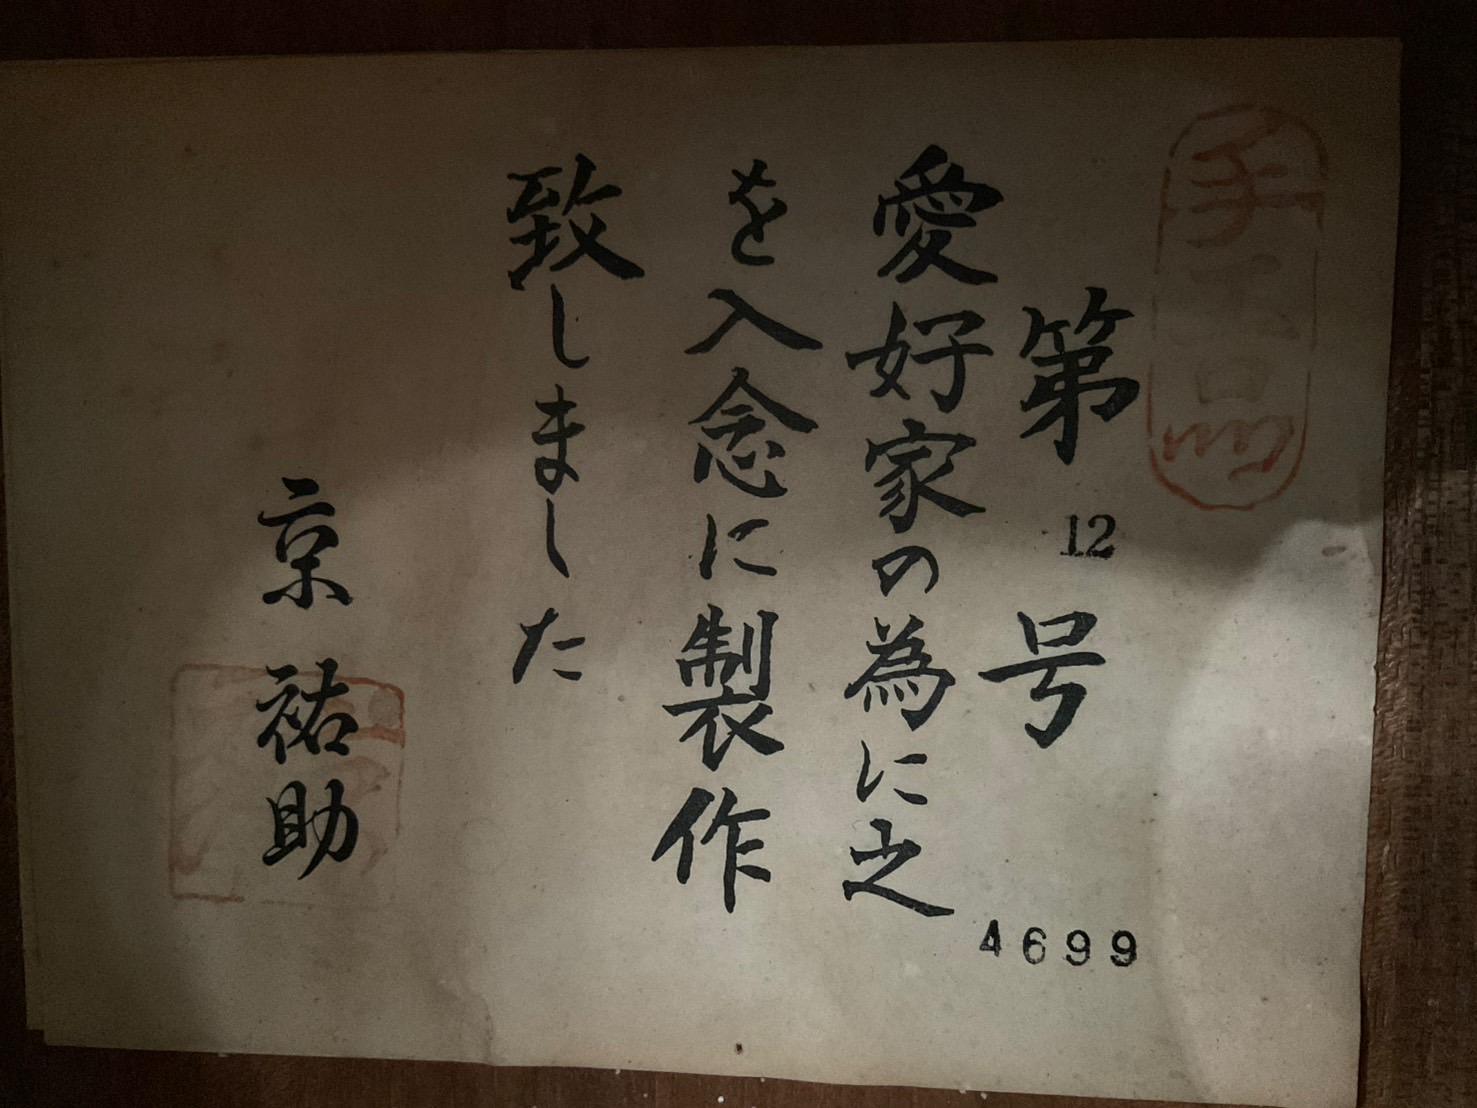 手工品
第12号
4699
愛好家の為に之
を入念に製作
致しました
京 祐助